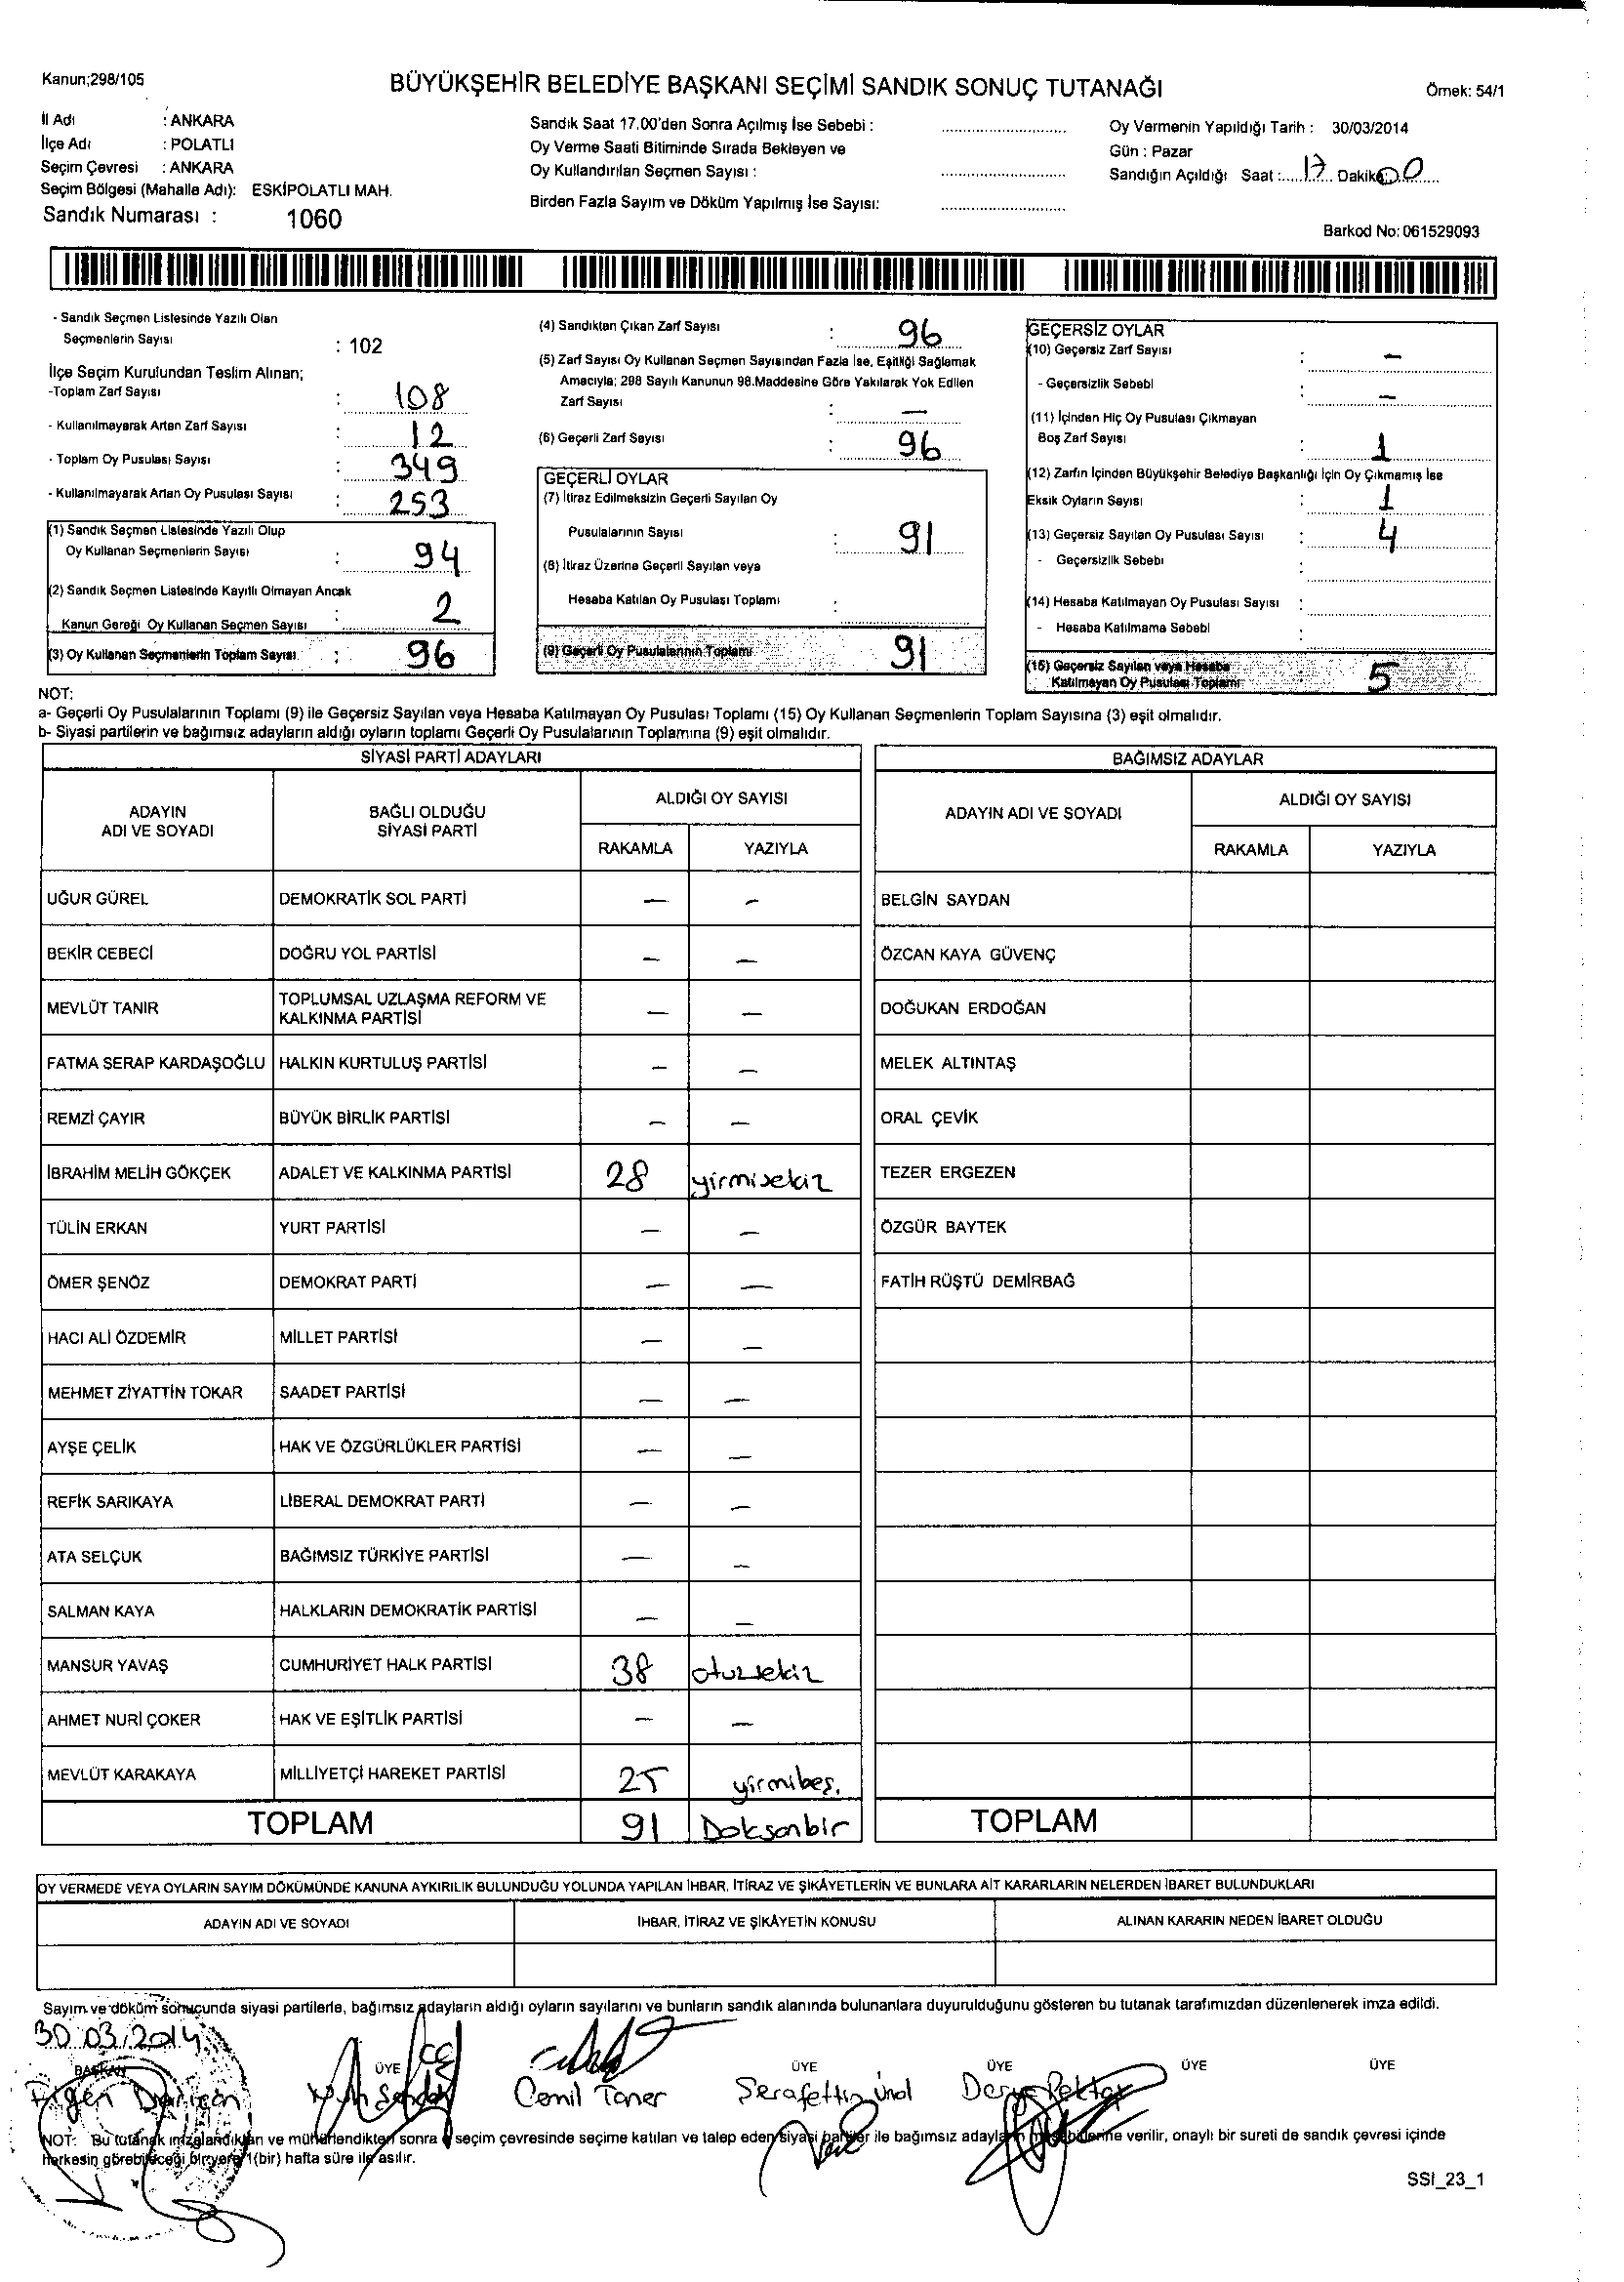 Kanun;298/105
BÜYÜKŞEHİR BELEDİYE BAŞKANI SEÇİMİ SANDIK SONUÇ TUTANAĞI
Örnek: 54/1
İl Adı : ANKARA
İlçe Adı : POLATLI
Seçim Çevresi : ANKARA
Seçim Bölgesi (Mahalle Adı): ESKİPOLATLI MAH.
Sandık Numarası : 1060
Sandık Saat 17.00'den Sonra Açılmış İse Sebebi :
Oy Verme Saati Bitiminde Sırada Bekleyen ve
Oy Kullandırılan Seçmen Sayısı :
Birden Fazla Sayım ve Döküm Yapılmış İse Sayısı:
Oy Vermenin Yapıldığı Tarih : 30/03/2014
Gün : Pazar
Sandığın Açıldığı Saat :.....17.... Dakika 00
Barkod No: 061529093
- Sandık Seçmen Listesinde Yazılı Olan
Seçmenlerin Sayısı : 102
İlçe Seçim Kurulundan Teslim Alınan;
-Toplam Zarf Sayısı : 108
- Kullanılmayarak Artan Zarf Sayısı : 12
- Toplam Oy Pusulası Sayısı : 349
- Kullanılmayarak Artan Oy Pusulası Sayısı : 253
(1) Sandık Seçmen Listesinde Yazılı Olup
Oy Kullanan Seçmenlerin Sayısı : 94
(2) Sandık Seçmen Listesinde Kayıtlı Olmayan Ancak
Kanun Gereği Oy Kullanan Seçmen Sayısı : 2
(3) Oy Kullanan Seçmenlerin Toplam Sayısı : 96
(4) Sandıktan Çıkan Zarf Sayısı : 96
(5) Zarf Sayısı Oy Kullanan Seçmen Sayısından Fazla İse, Eşitliği Sağlamak
Amacıyla; 298 Sayılı Kanunun 98.Maddesine Göre Yakılarak Yok Edilen
Zarf Sayısı : —
(6) Geçerli Zarf Sayısı : 96
GEÇERLİ OYLAR
(7) İtiraz Edilmeksizin Geçerli Sayılan Oy
Pusulalarının Sayısı : 91
(8) İtiraz Üzerine Geçerli Sayılan veya
Hesaba Katılan Oy Pusulası Toplamı :
(9) Geçerli Oy Pusulalarının Toplamı 91
GEÇERSİZ OYLAR
(10) Geçersiz Zarf Sayısı : —
- Geçersizlik Sebebi : —
(11) İçinden Hiç Oy Pusulası Çıkmayan
Boş Zarf Sayısı : 1
(12) Zarfın İçinden Büyükşehir Belediye Başkanlığı İçin Oy Çıkmamış İse
Eksik Oyların Sayısı : 1
(13) Geçersiz Sayılan Oy Pusulası Sayısı : 4
- Geçersizlik Sebebi :
(14) Hesaba Katılmayan Oy Pusulası Sayısı :
- Hesaba Katılmama Sebebi :
(15) Geçersiz Sayılan veya Hesaba
Katılmayan Oy Pusulası Toplamı : 5
NOT:
a- Geçerli Oy Pusulalarının Toplamı (9) ile Geçersiz Sayılan veya Hesaba Katılmayan Oy Pusulası Toplamı (15) Oy Kullanan Seçmenlerin Toplam Sayısına (3) eşit olmalıdır.
b- Siyasi partilerin ve bağımsız adayların aldığı oyların toplamı Geçerli Oy Pusulalarının Toplamına (9) eşit olmalıdır.
SİYASİ PARTİ ADAYLARI
ADAYIN ADI VE SOYADI
BAĞLI OLDUĞU SİYASİ PARTİ
ALDIĞI OY SAYISI
RAKAMLA YAZIYLA
UĞUR GÜREL DEMOKRATİK SOL PARTİ — —
BEKİR CEBECİ DOĞRU YOL PARTİSİ — —
MEVLÜT TANIR TOPLUMSAL UZLAŞMA REFORM VE KALKINMA PARTİSİ — —
FATMA SERAP KARDAŞOĞLU HALKIN KURTULUŞ PARTİSİ — —
REMZİ ÇAYIR BÜYÜK BİRLİK PARTİSİ — —
İBRAHİM MELİH GÖKÇEK ADALET VE KALKINMA PARTİSİ 28 yirmisekiz
TÜLİN ERKAN YURT PARTİSİ — —
ÖMER ŞENÖZ DEMOKRAT PARTİ — —
HACI ALİ ÖZDEMİR MİLLET PARTİSİ — —
MEHMET ZİYATTİN TOKAR SAADET PARTİSİ — —
AYŞE ÇELİK HAK VE ÖZGÜRLÜKLER PARTİSİ — —
REFİK SARIKAYA LİBERAL DEMOKRAT PARTİ — —
ATA SELÇUK BAĞIMSIZ TÜRKİYE PARTİSİ — —
SALMAN KAYA HALKLARIN DEMOKRATİK PARTİSİ — —
MANSUR YAVAŞ CUMHURİYET HALK PARTİSİ 38 otuzsekiz
AHMET NURİ ÇOKER HAK VE EŞİTLİK PARTİSİ — —
MEVLÜT KARAKAYA MİLLİYETÇİ HAREKET PARTİSİ 25 yirmibeş.
TOPLAM 91 Doksanbir
BAĞIMSIZ ADAYLAR
ADAYIN ADI VE SOYADI
ALDIĞI OY SAYISI
RAKAMLA YAZIYLA
BELGİN SAYDAN
ÖZCAN KAYA GÜVENÇ
DOĞUKAN ERDOĞAN
MELEK ALTINTAŞ
ORAL ÇEVİK
TEZER ERGEZEN
ÖZGÜR BAYTEK
FATİH RÜŞTÜ DEMİRBAĞ
TOPLAM
OY VERMEDE VEYA OYLARIN SAYIM DÖKÜMÜNDE KANUNA AYKIRILIK BULUNDUĞU YOLUNDA YAPILAN İHBAR, İTİRAZ VE ŞİKÂYETLERİN VE BUNLARA AİT KARARLARIN NELERDEN İBARET BULUNDUKLARI
ADAYIN ADI VE SOYADI İHBAR, İTİRAZ VE ŞİKÂYETİN KONUSU ALINAN KARARIN NEDEN İBARET OLDUĞU
Sayım ve döküm sonucunda siyasi partilerle, bağımsız adayların aldığı oyların sayılarını ve bunların sandık alanında bulunanlara duyurulduğunu gösteren bu tutanak tarafımızdan düzenlenerek imza edildi.
30.03.2014
BAŞKAN ÜYE ÜYE ÜYE ÜYE ÜYE
Cemil Taner Serafettin Ünal Derya Pektaş
NOT: Bu tutanak imzalandıktan ve mühürlendikten sonra seçim çevresinde seçime katılan ve talep eden siyasi partiler ile bağımsız adayların müşahitlerine verilir, onaylı bir sureti de sandık çevresi içinde
herkesin görebileceği bir yere 1(bir) hafta süre ile asılır.
SSI_23_1